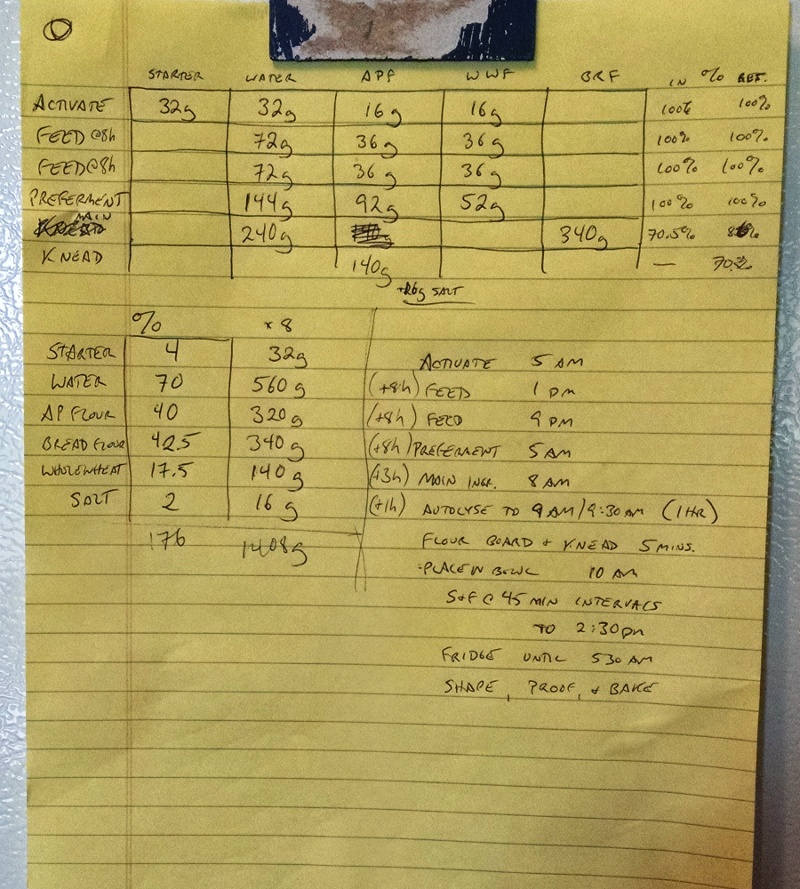 STARTER WATER APF WWF BRF IN % REF.
ACTIVATE 32g 32g 16g 16g 100% 100%
FEED @8h 72g 36g 36g 100% 100%
FEED @8h 72g 36g 36g 100% 100%
PREFERMENT 144g 92g 52g 100% 100%
MAIN 240g 340g 70.5%
KNEAD 140g —
SALT
% × 8
STARTER 4 32g
WATER 70 560g
AP FLOUR 40 320g
BREAD FLOUR 42.5 340g
WHOLEWHEAT 17.5 140g
SALT 2 16g
176 1408g
ACTIVATE 5 AM
(+8h) FEED 1 PM
(+8h) FEED 9 PM
(+8h) PREFERMENT 5 AM
(+3h) MAIN INGR. 8 AM
(+1h) AUTOLYSE TO 9 AM/9:30 AM (1HR)
FLOUR BOARD + KNEAD 5 MINS.
PLACE IN BOWL 10 AM
S+F @ 45 MIN INTERVALS
TO 2:30pm
FRIDGE UNTIL 530 AM
SHAPE, PROOF, + BAKE